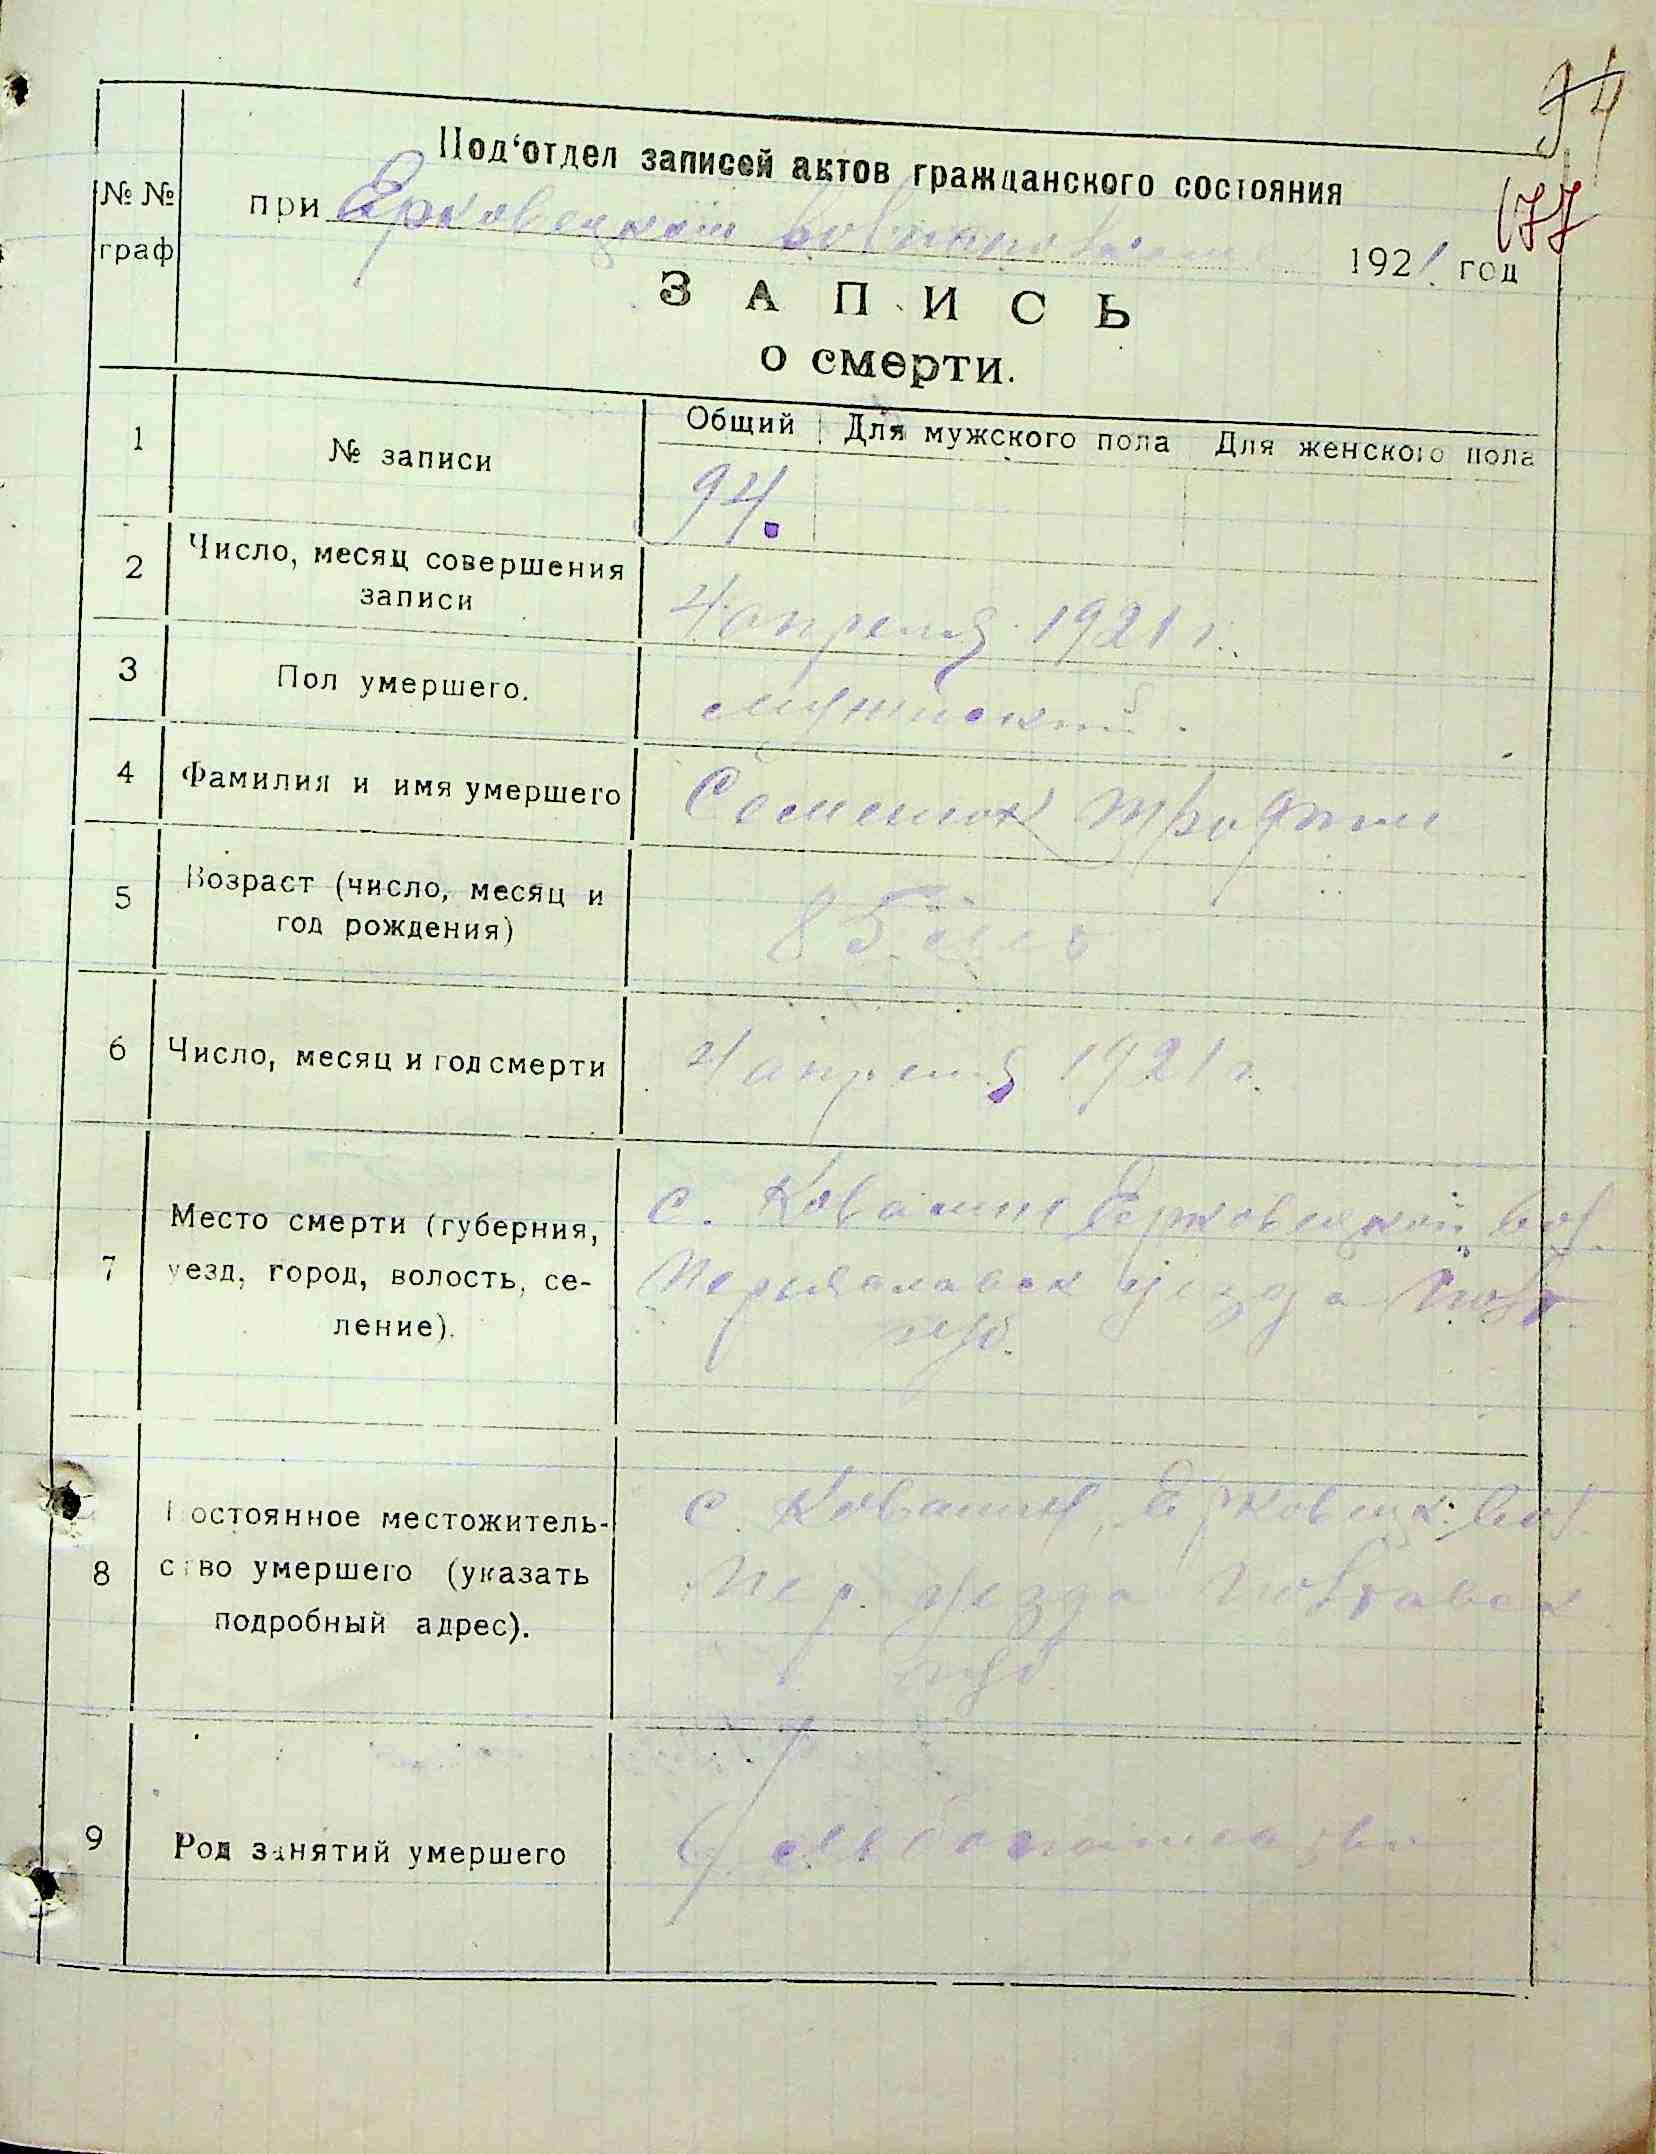 94
177
Под‘отдел записей актов гражданского состояния
№ № граф
при Ерковецком волисполкоме 1921 год
ЗАПИСЬ
о смерти.
1 № записи Общий Для мужского пола Для женского пола
94.
2 Число, месяц совершения
записи
4 апреля 1921 г.
3 Пол умершего.
мужиский.
4 Фамилия и имя умершего
Семенюк Трофим
5 Возраст (число, месяц и
год рождения)
85
6 Число, месяц и год смерти
4 апреля 1921 г.
7 Место смерти (губерния,
уезд, город, волость, се-
ление).
с. Ковалин Ерковецкой вол.
Переяславск уезда Полт.
губ.
8 Постоянное местожитель-
ство умершего (указать
подробный адрес).
с. Ковалин, Ерковецк. вол.
Пер. уезда Полтавск
губ
9 Род занятий умершего